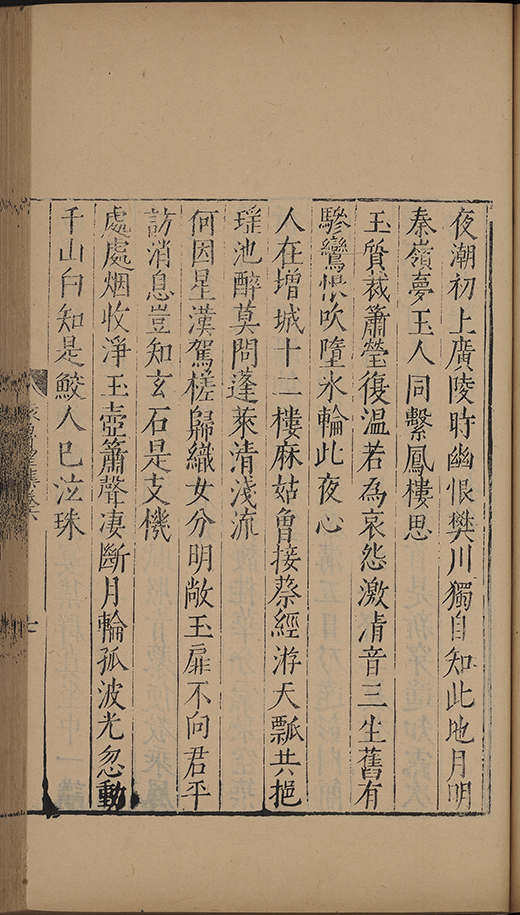 夜潮初上廣陵時幽恨樊川獨自知此地月明
秦嶺夢玉人同繫鳳樓思
玉質裁簫瑩復溫若為哀怨激清音三生舊有
驂鸞恨吹墮氷輪此夜心
人在增城十二樓麻姑曾接蔡經游天瓢共挹
瑤池醉莫問蓬萊清淺流
何因星漢駕槎歸織女分明敞玉扉不向君平
訪消息豈知玄石是支機
處處烟收淨玉壺簫聲凄斷月輪孤波光忽動
千山白知是鮫人已泣珠
七